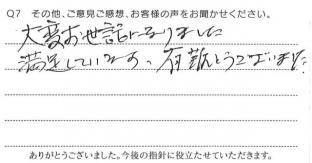 Q7 その他、ご意見ご感想、お客様の声をお聞かせください。
大変お世話になりました
満足しています。有難とうございました
ありがとうございました。今後の指針に役立たせていただきます。